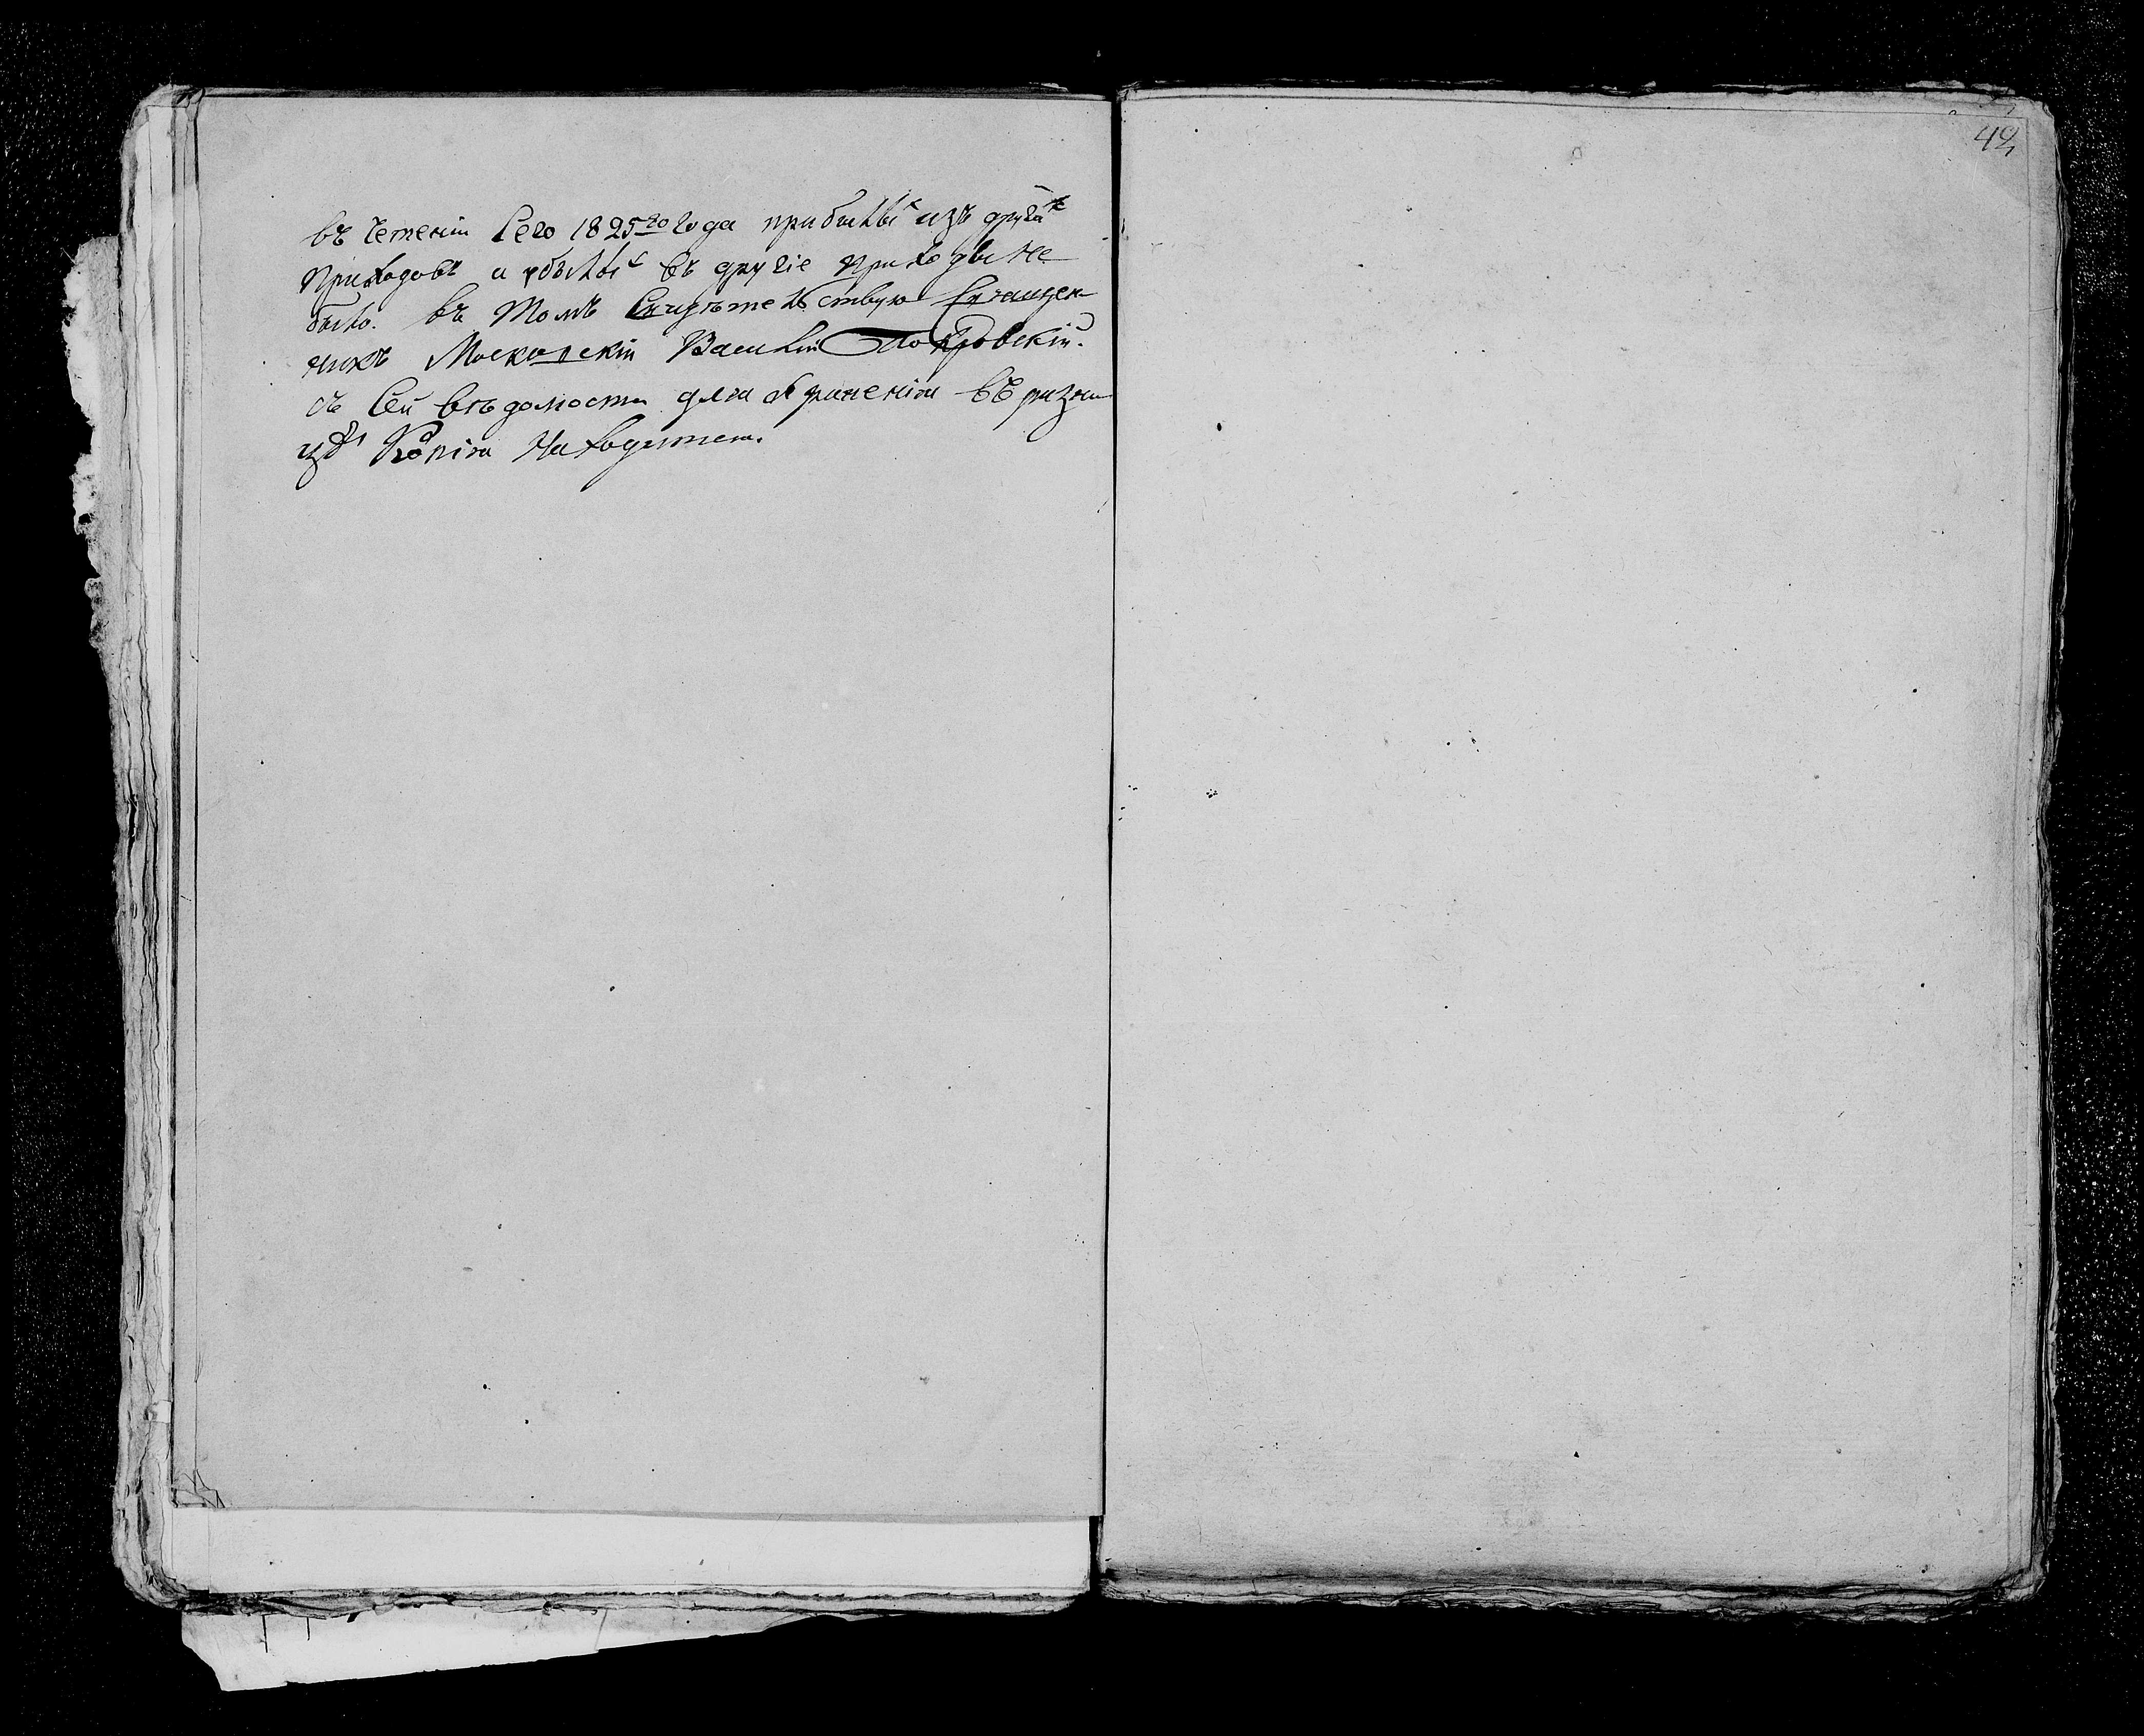 въ Течении Сего 1825го года прибылыхъ изъ другихъ
приходовъ и убылыхъ въ другiе приходы не
было. въ томъ Свидѣтельствую Священ-
никъ Василiй Покровскiй.
съ Сей вѣдомости для храненiя въ ризни-
цѣ Копiя Находится.
42